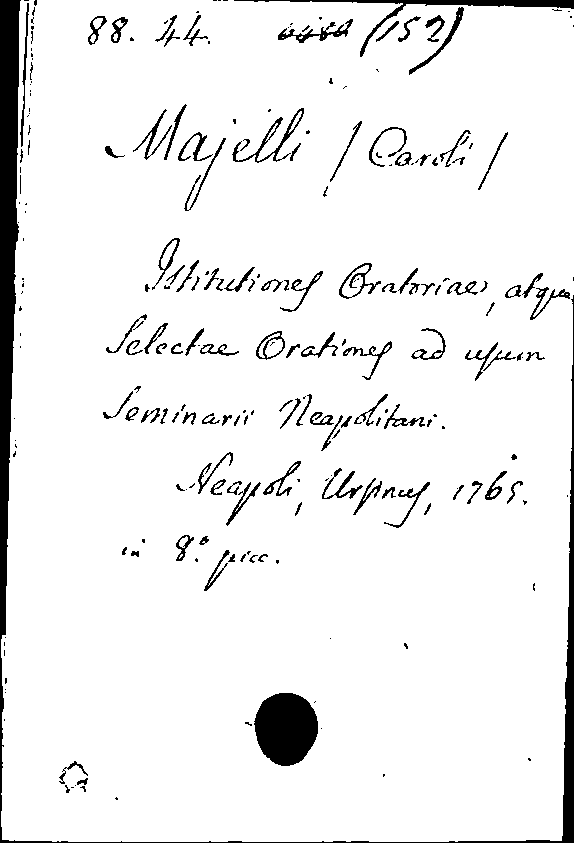 88. 44. (152)
Majelli / Caroli /
Istitutiones Oratoriae, atque
Selectae Orationes ad usum
Seminarii Neapolitani.
Neapoli, Ursinus, 1765.
in 8.° picc.